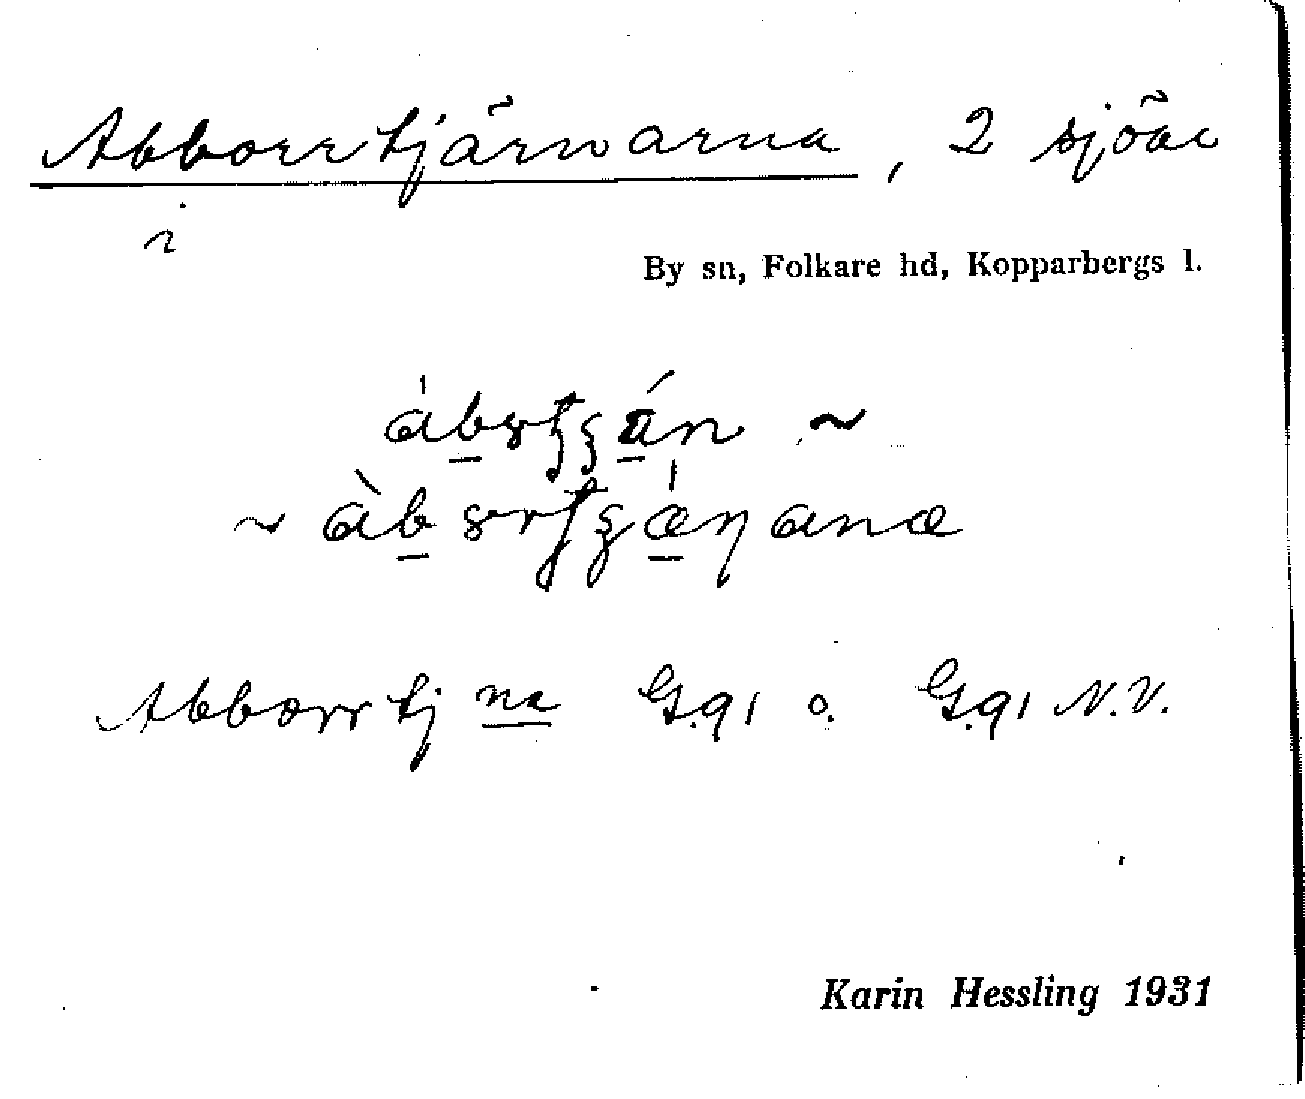 Abborrtjärnarna, 2 sjöar
i
By sn, Folkare hd, Kopparbergs l.
~
~
Abborrtj na G.91 o. G.91 N.V.
Karin Hessling 1931